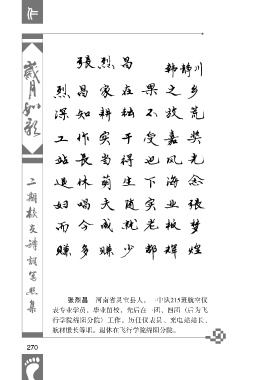 作
岁月如歌
二期校友诗词写照集
张烈昌
韩静川
烈昌家在果之乡
深知耕耘不放荒
工作实干受嘉奖
站长当得也风光
退休萌生下海念
妇唱夫随实业张
而今成就老板梦
赚多赚少都辉煌
张烈昌 河南省灵宝县人。一中队215班航空仪
表专业学员，毕业留校，先后在一团、四团（后为飞
行学院绵阳分院）工作，历任仪表员、充电站站长、
航材股长等职。退休在飞行学院绵阳分院。
270